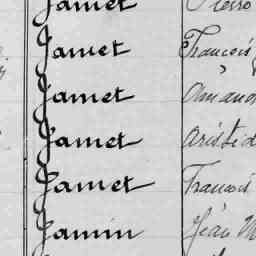 Jamet Pierre
Jamet François
Jamet
Jamet Aristid
Jamet François
Jamin Jean M